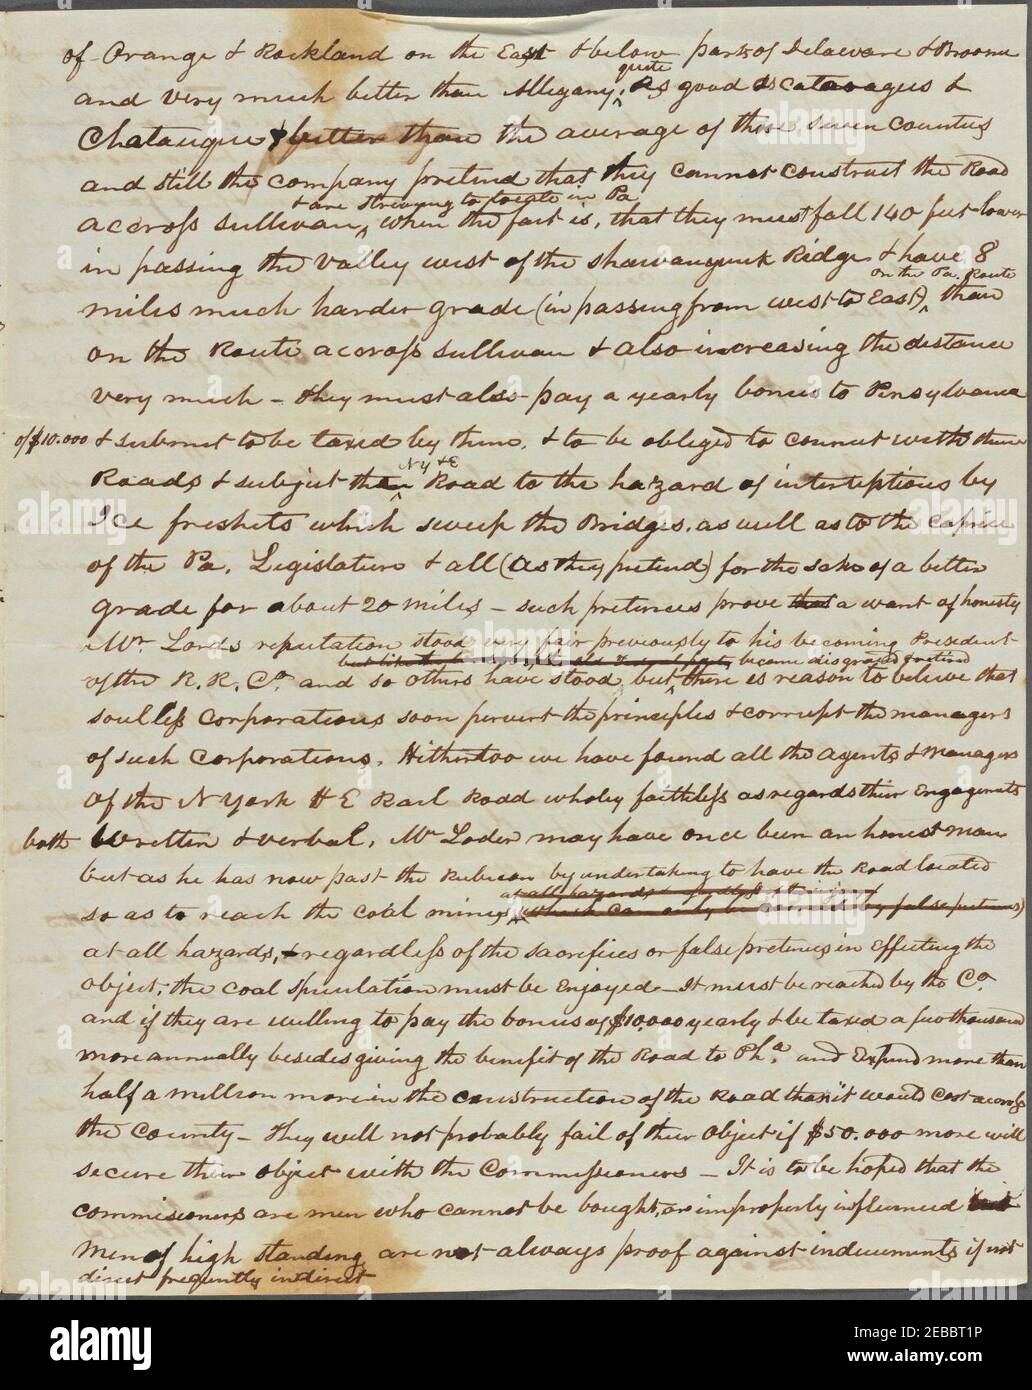 of Orange & Rockland on the East & below parts of Delaware & Broome
quite
and very much better than Allegany, As good as Cataragus &
Chatauque & better than the average of those seven Counties
and still the company pretend that they cannot construct the Road
& are striving to locate in Pa
across Sullivan, when the fact is, that they must fall 140 feet lower
in passing the valley west of the Shawangunk Ridge & have 8
on the Pa. Route
miles much harder grade (in passing from west to East), than
on the Route across Sullivan & also increasing the distance
very much – they must also pay a yearly bonus to Pensylvania
of $10.000 & submit to be taxed by them, & to be obliged to connect with their
N Y & E
Roads & subject then Road to the hazard of interceptions by
Ice freshets which sweep the Bridges, as well as to the Caprice
of the Pa. Legislature & all (as they pretend) for the sake of a better
grade for about 20 miles – such pretences prove that a want of honesty
Mr. Lords reputation stood very fair previously to his becoming President
but like the become disgraced
of the R. R. Co. and so others have stood but there is reason to believe that
soulless Corporations soon pervert the principles & corrupt the managers
of such Corporations. Hithertoo we have found all the Agents & Managers
of the N York & E Rail Road wholy faithless as regards their Engagements
both Written & verbal. Mr Loder may have once been an honest man
but as he has now past the Rubicon by undertaking to have the Road located
at all hazards &
so as to reach the Coal mines, which can only be by false pretences)
at all hazards, & regardless of the sacrifices or false pretences in Effecting the
object, the coal speculation must be Enjoyed – It must be reached by the Co.
and if they are willing to pay the bonus of $10,000 yearly & be taxed a few thousand
more annually besides giving the benefit of the Road to Pha. and Expend more than
half a million more in the construction of the Road than it would Cost across
the County – They will not probably fail of their Object if $50.000 more will
secure their object with the Commissioners – It is to be hoped that the
commissioners are men who cannot be bought, or improperly influenced but
Men of high standing are not always proof against inducements if not
direct frequently indirect
alamy
Image ID: 2EBBT1P
www.alamy.com